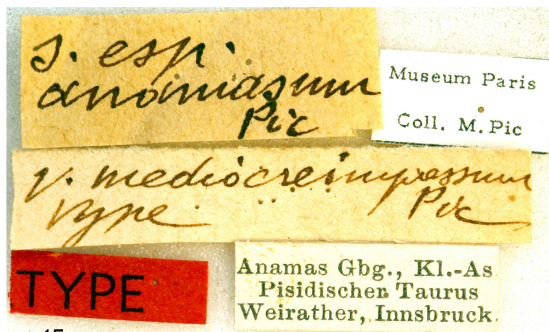 s. esp.
anamasum
Pic
Museum Paris
Coll. M. Pic
v. mediocreimpressum
type Pic
TYPE
Anamas Gbg., Kl.-As
Pisidischer Taurus
Weirather, Innsbruck